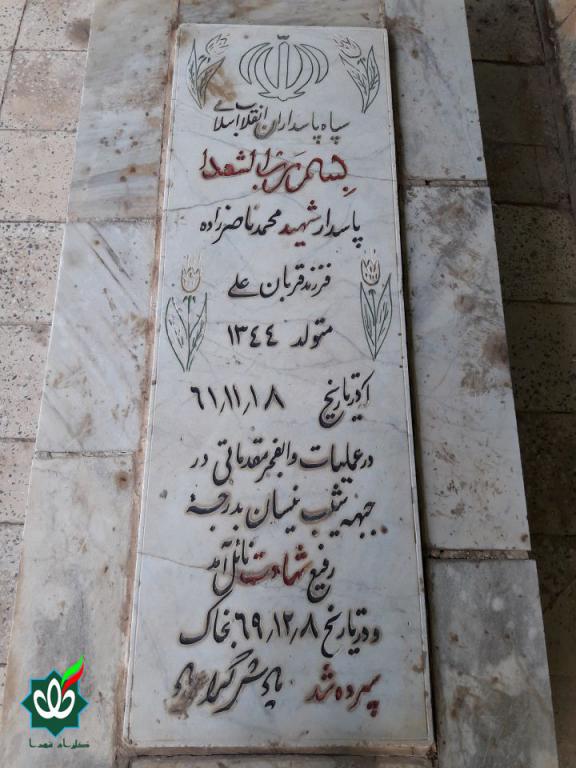 سپاه پاسداران انقلاب اسلامی
بسم رب الشهدا
پاسدار شهید محمد ناصرزاده
فرزند قربان علی
متولد ۱۳۴۴
که در تاریخ ۶۱٫۱۱٫۱۸
در عملیات والفجر مقدماتی در
جبهه شیب نیسان بدرجهٔ
رفیع شهادت نائل آمد
و در تاریخ ۶۹٫۱۲٫۸ بخاک
سپرده شد یادش گرامی باد
گلزار شهدا